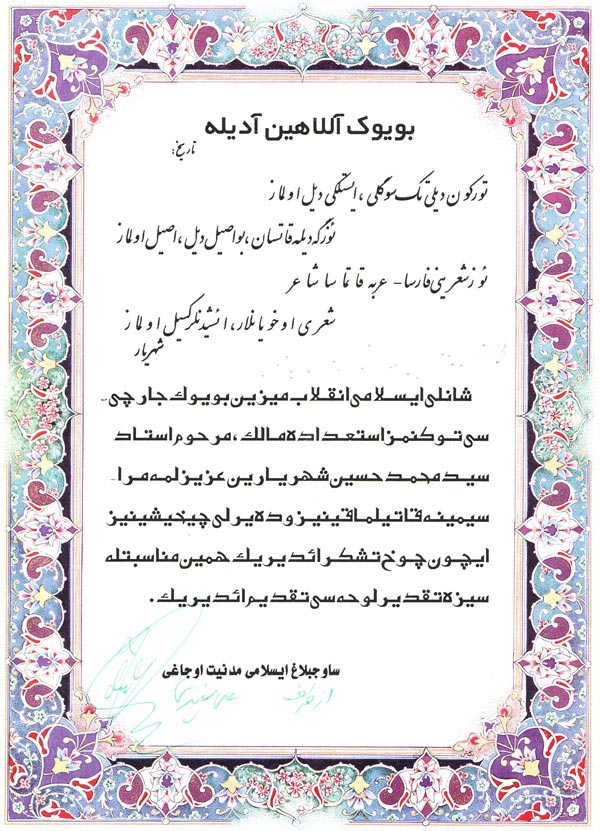 بویوک آللاهین آدیله
تاریخ:
تورکون دیلی تک سوگلی، ایستکلی دیل اولماز
ئوزگه دیله قاتسان، بو اصیل دیل، اصیل اولماز
ئوز شعرینی فارسا - عربه قاتماسا شاعر
شعری اوخویانلار، ائشیدنلر کسیل اولماز
شهریار
شانلی ایسلامی انقلاب میزین بویوک جارچی-
سی توکنمز استعداده مالک، مرحوم استاد
سید محمد حسین شهریارین عزیز لمه مرا-
سیمینه قاتیلماقینیز و دلایرلی چیخیشینیز
ایچون چوخ تشکر ائدیریک همین مناسبتله
سیزه تقدیر لوحه سی تقدیم ائدیریک.
ساوجبلاغ ایسلامی مدنیت اوجاغی
از طرف